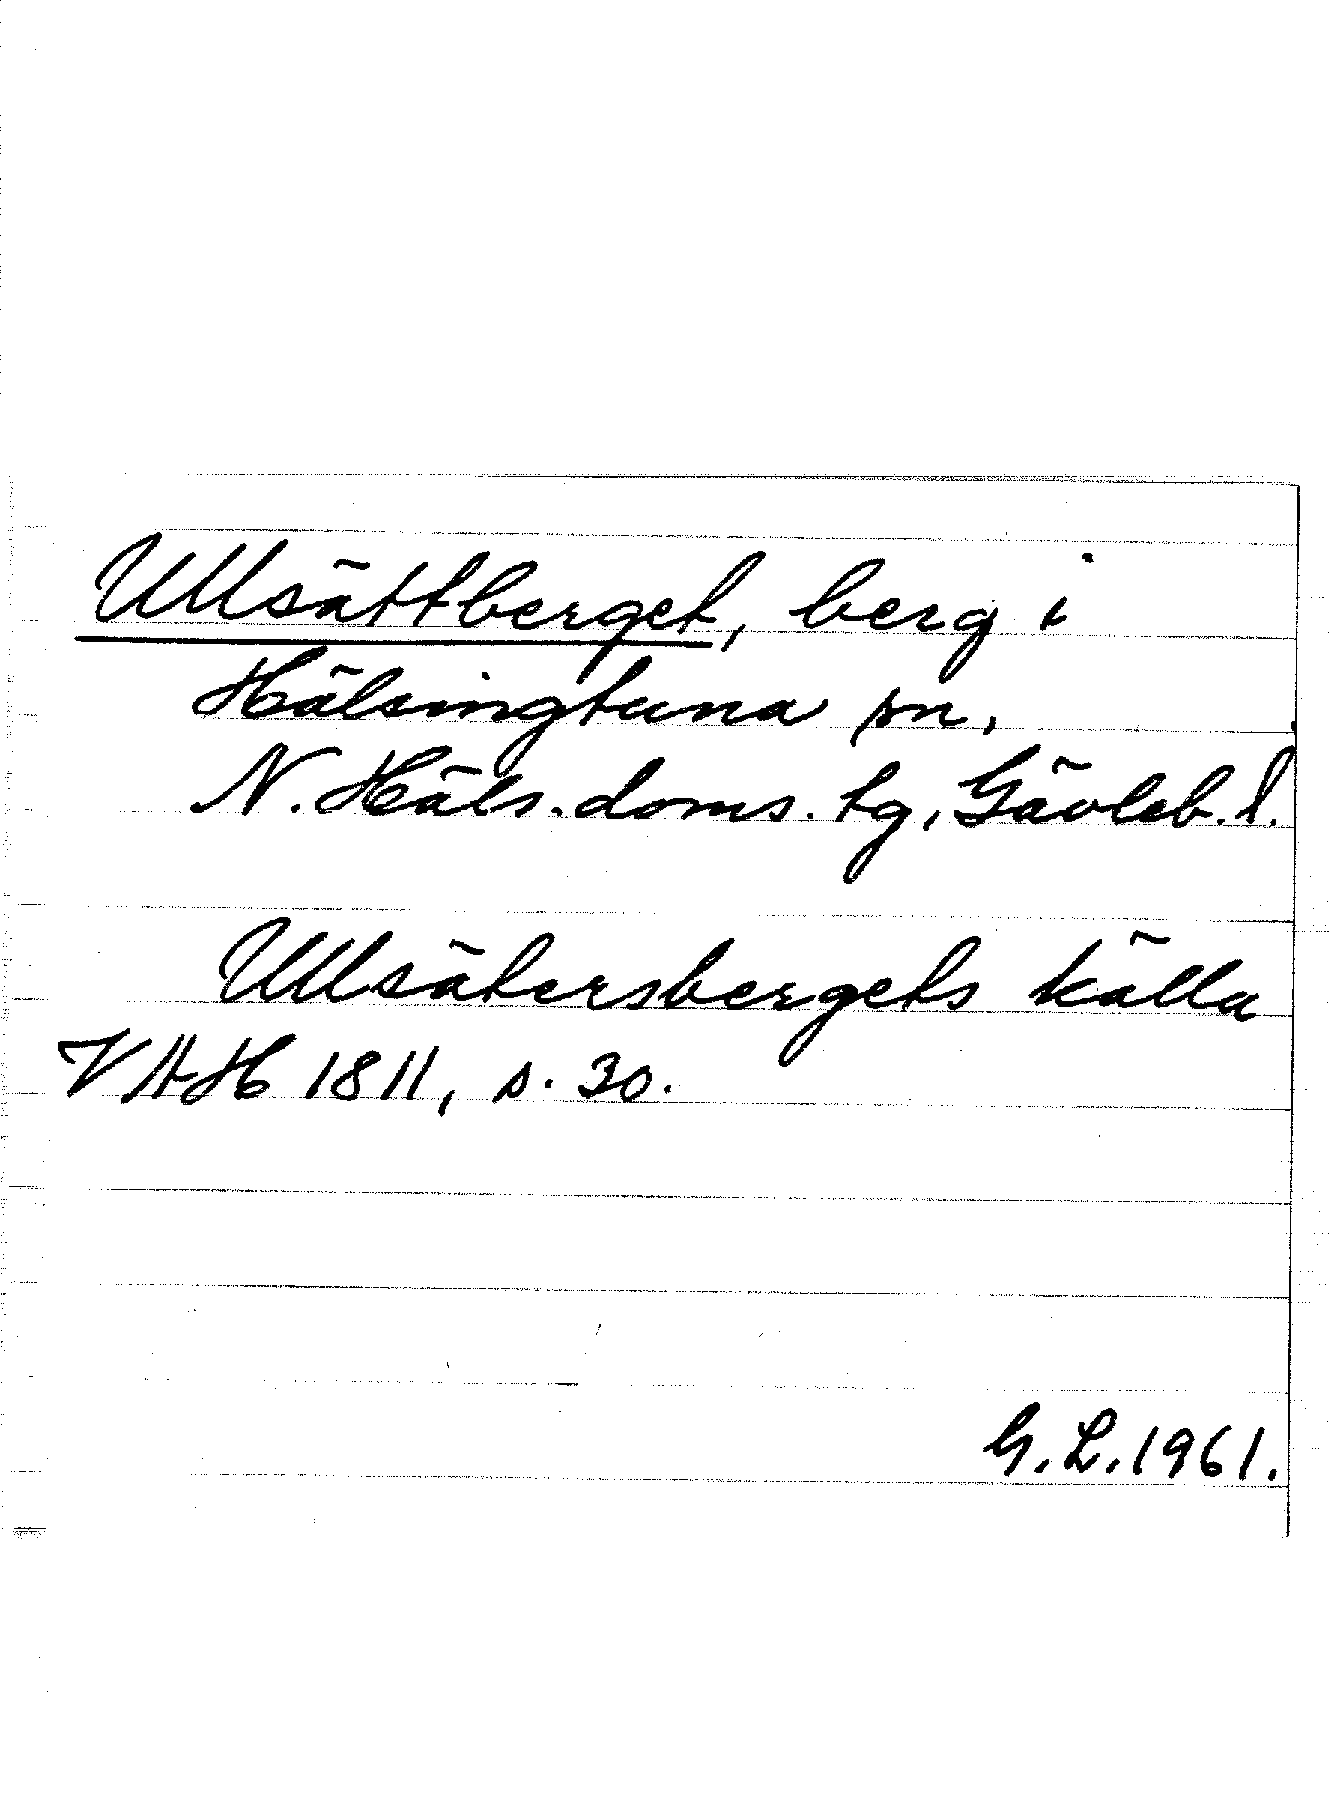 Ullsättberget, berg i
Hälsingtuna sn,
N. Häls. doms. tg, Gävleb. l.
Ullsätersbergets källa
VAH 1811, s. 30.
G. L. 1961.